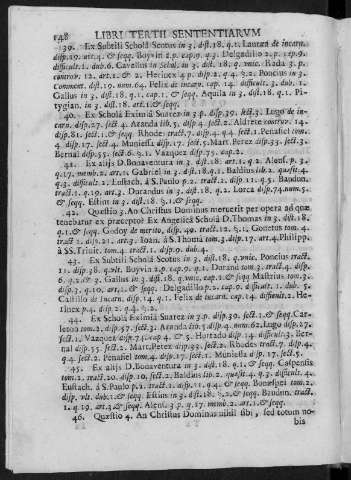 148 LIBRI TERTII SENTENTIARVM
39. Ex Subtili Scholâ Scotus in 3. dist. 18. q.1. Lauræa de incarn.
disp.19. art.4. & seqq. Boyvin 2.p. cap.9. q.3. Delgadillo 2.p. cap.19.
difficult.1. dub.6. Gavellus in Schol. in 3. dist. 18. q. unic. Rada 3. p.
controv. 12. art.1. & 2. Herincx 4.p. disp.2. q.4. §.2. Poncius in 3.
Comment. dist.19. num.64. Felix de incarn. cap. 14. difficult. 3. du.
Gallus in 3. dist. 18. q.1. cap.1. & seqq. Aquia in 3. dist. 18. q.1. Pi-
tygian. in 3. dist. 18. art.1. & seqq.
40. Ex Scholâ Eximiâ Suarez in 3.p. disp.39. sect.3. Lugo de in-
carn. disp.27. sect.4. Aranda lib.5. disp.4. sect.2. Aldrete controv. 14.
disp.81. sect.1. & seqq. Rhodes tract.7. disp.4. q.4. sect.1. Peñafiel tom.
4. disp.17. sect.4. Muniessa disp.17. sect.5. Mart. Perez disp.33. sect.3.
Bernal disp.55. sect.6. §.1. Vazquez disp.75. cap.2.
41. Ex alijs D. Bonaventura in 3. dist. 18. art.1. q.2. Alens. p. 3.
q.17. memb.2. art.1. Gabriel in 3. dist.18. q.1. Baldius lib.2. quæsit.4.
q.3. difficult.2. Eustach. à S. Paulo p.2. tract.1. disp.11. q.5. Baudon.
tract.1. q.19. art.3. Durandus in 3. dist.18. q.2. Lorca disp.74. num.5.
& seqq. Estius in 3. dist.18. §.1. & seqq.
42. Quæstio 3. An Christus Dominus meruerit per opera ad quæ
tenebatur ex præcepto? Ex Angelicâ Scholâ D. Thomas in 3. dist. 18.
q.1. & seqq. Godoy de merito, disp.50. tract.12. §.1. Gonetus tom.4.
tract. 1. disp.21. art.3. Ioan. à S. Thoma tom.3. disp.17. art.4. Philipp.
à SS. Trinit. tom.4. tract.1. disp.9. dub.4.
43. Ex Subtili Scholâ Scotus in 3. dist.18. q. unic. Poncius tract.
11. disp.38. q. ult. Boyvin 2.p. cap.9. q.1. Durand tom.3. tract.4. disp.
6. q.2. & 3. Gallus in 3. dist.18. q. unic. cap.2. & seqq. Mastrius tom.3.
disp.3. q.10. art.1. & seqq. Delgadillo p.2. cap.19. difficult.2. dub.5.
Castillo de Incarn. disp.14. q.1. Felix de incarn. cap.14. difficult.2. He-
rincx p.4. disp.2. q.4. §.2.
44. Ex Scholâ Eximiâ Suarez in 3.p. disp.39. sect.1. & seqq. Car-
leton tom.2. disp.57. sect.3. Aranda lib.5. disp.4. num.62. Lugo disp.27.
sect.1. Vazquez disp.74. cap.4. & 5. Hurtado disp.14. difficult.3. Ber-
nal disp.55. sect.2. Mart. Perez disp.33. sect.1. Rhodes tract.7. disp.4.
q.4. sect.2. Peñafiel tom.4. disp.17. sect.1. Muniessa disp.17. sect.5.
45. Ex alijs D. Bonaventura in 3. dist.18. q.1. & seqq. Gaspensis
tom.2. tract.20. disp.10. sect.2. Baldius lib.2. quæsit.4. q.3. difficult.4.
Eustach. à S. Paulo p.2. tract.1. disp.11. q.4. & seqq. Bonespei tom.2.
disp. ult. dub.1. & seqq. Estius in 3. dist.18. §.2. & seqq. Baudon. tract.
1. q.19. art.3. & seqq. Alens. 3.p. q.17. memb.2. art.1. & seqq.
46. Quæstio 4. An Christus Dominus nihil sibi, sed totum no-
bis